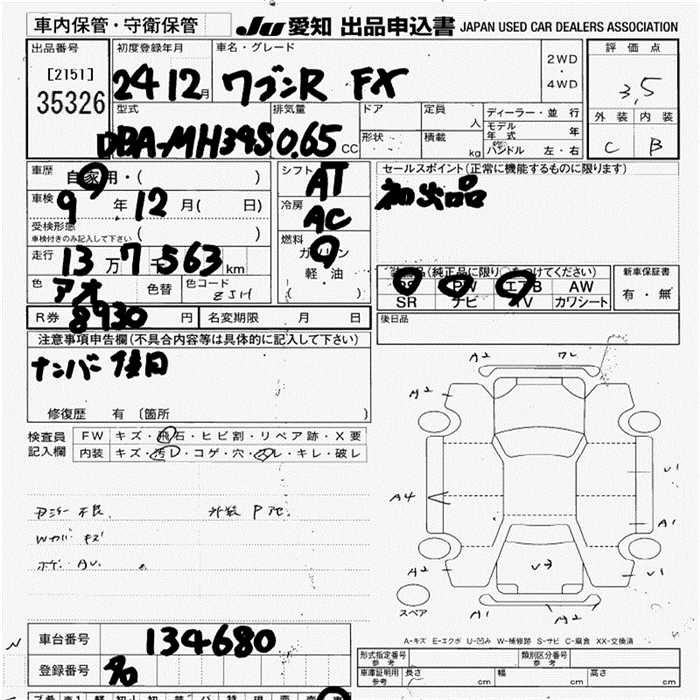 車内保管・守衛保管
JU 愛知 出品申込書 JAPAN USED CAR DEALERS ASSOCIATION
出品番号
[2151]
35326
初度登録年月
24 12月
車名・グレード
ワゴンR FX
2WD
・
4WD
評価点
3,5
外装 内装
C B
型式
DBA-MH34S
排気量
0.65 CC
ドア
形状
定員
人
積載
kg
ディーラー・並行
モデル年式 年
ハンドル 左・右
車歴
自家用・( )
車検
9年12月( 日)
受検形態
車検付きのみ記入して下さい ( )
走行
13万7千563km
色
アオ
色替
色コード
ZJH
シフト
AT
冷房
AC
燃料
ガソリン
軽・油
( )
セールスポイント(正常に機能するものに限ります)
初出品
装備品(純正品に限り○をつけてください)
PS PW エアB AW
SR ナビ TV カワシート
新車保証書
有・無
後日品
R券 8930円
名変期限 月 日
注意事項申告欄(不具合内容等は具体的に記入して下さい)
ナンバー 後日
修復歴 有 〔箇所 〕
検査員
記入欄
FW キズ・飛石・ヒビ割・リペア跡・X要
内装 キズ・汚レ・コゲ・穴・スレ・キレ・破レ
外装
Wカバ キズ
A2
A2
A2
A4
U1
A1
U3
U1
A1
A2
スペア
A-キズ E-エクボ U-凹み W-補修跡 S-サビ C-腐食 XX-交換済
車台番号
134680
登録番号
形式指定番号
参考
類別区分番号
参考
車庫証明用
参考
長さ cm
幅 cm
高さ cm